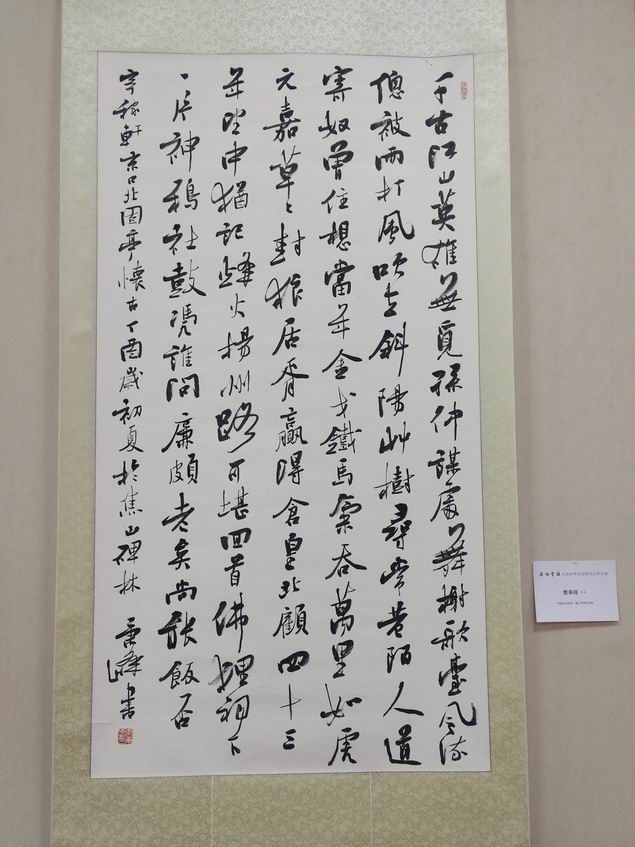 千古江山英雄無覓孫仲謀處舞榭歌臺風流
總被雨打風吹去斜陽艸樹尋常巷陌人道
寄奴曾住想當年金戈鐵馬氣吞萬里如虎
元嘉草〻封狼居胥贏得倉皇北顧四十三
年望中猶記烽火揚州路可堪回首佛狸祠下
一片神鴉社鼓憑誰問廉頗老矣尚能飯否
辛稼軒京口北固亭懷古丁酉歲初夏於焦山碑林 秉峰書
曹秉峰